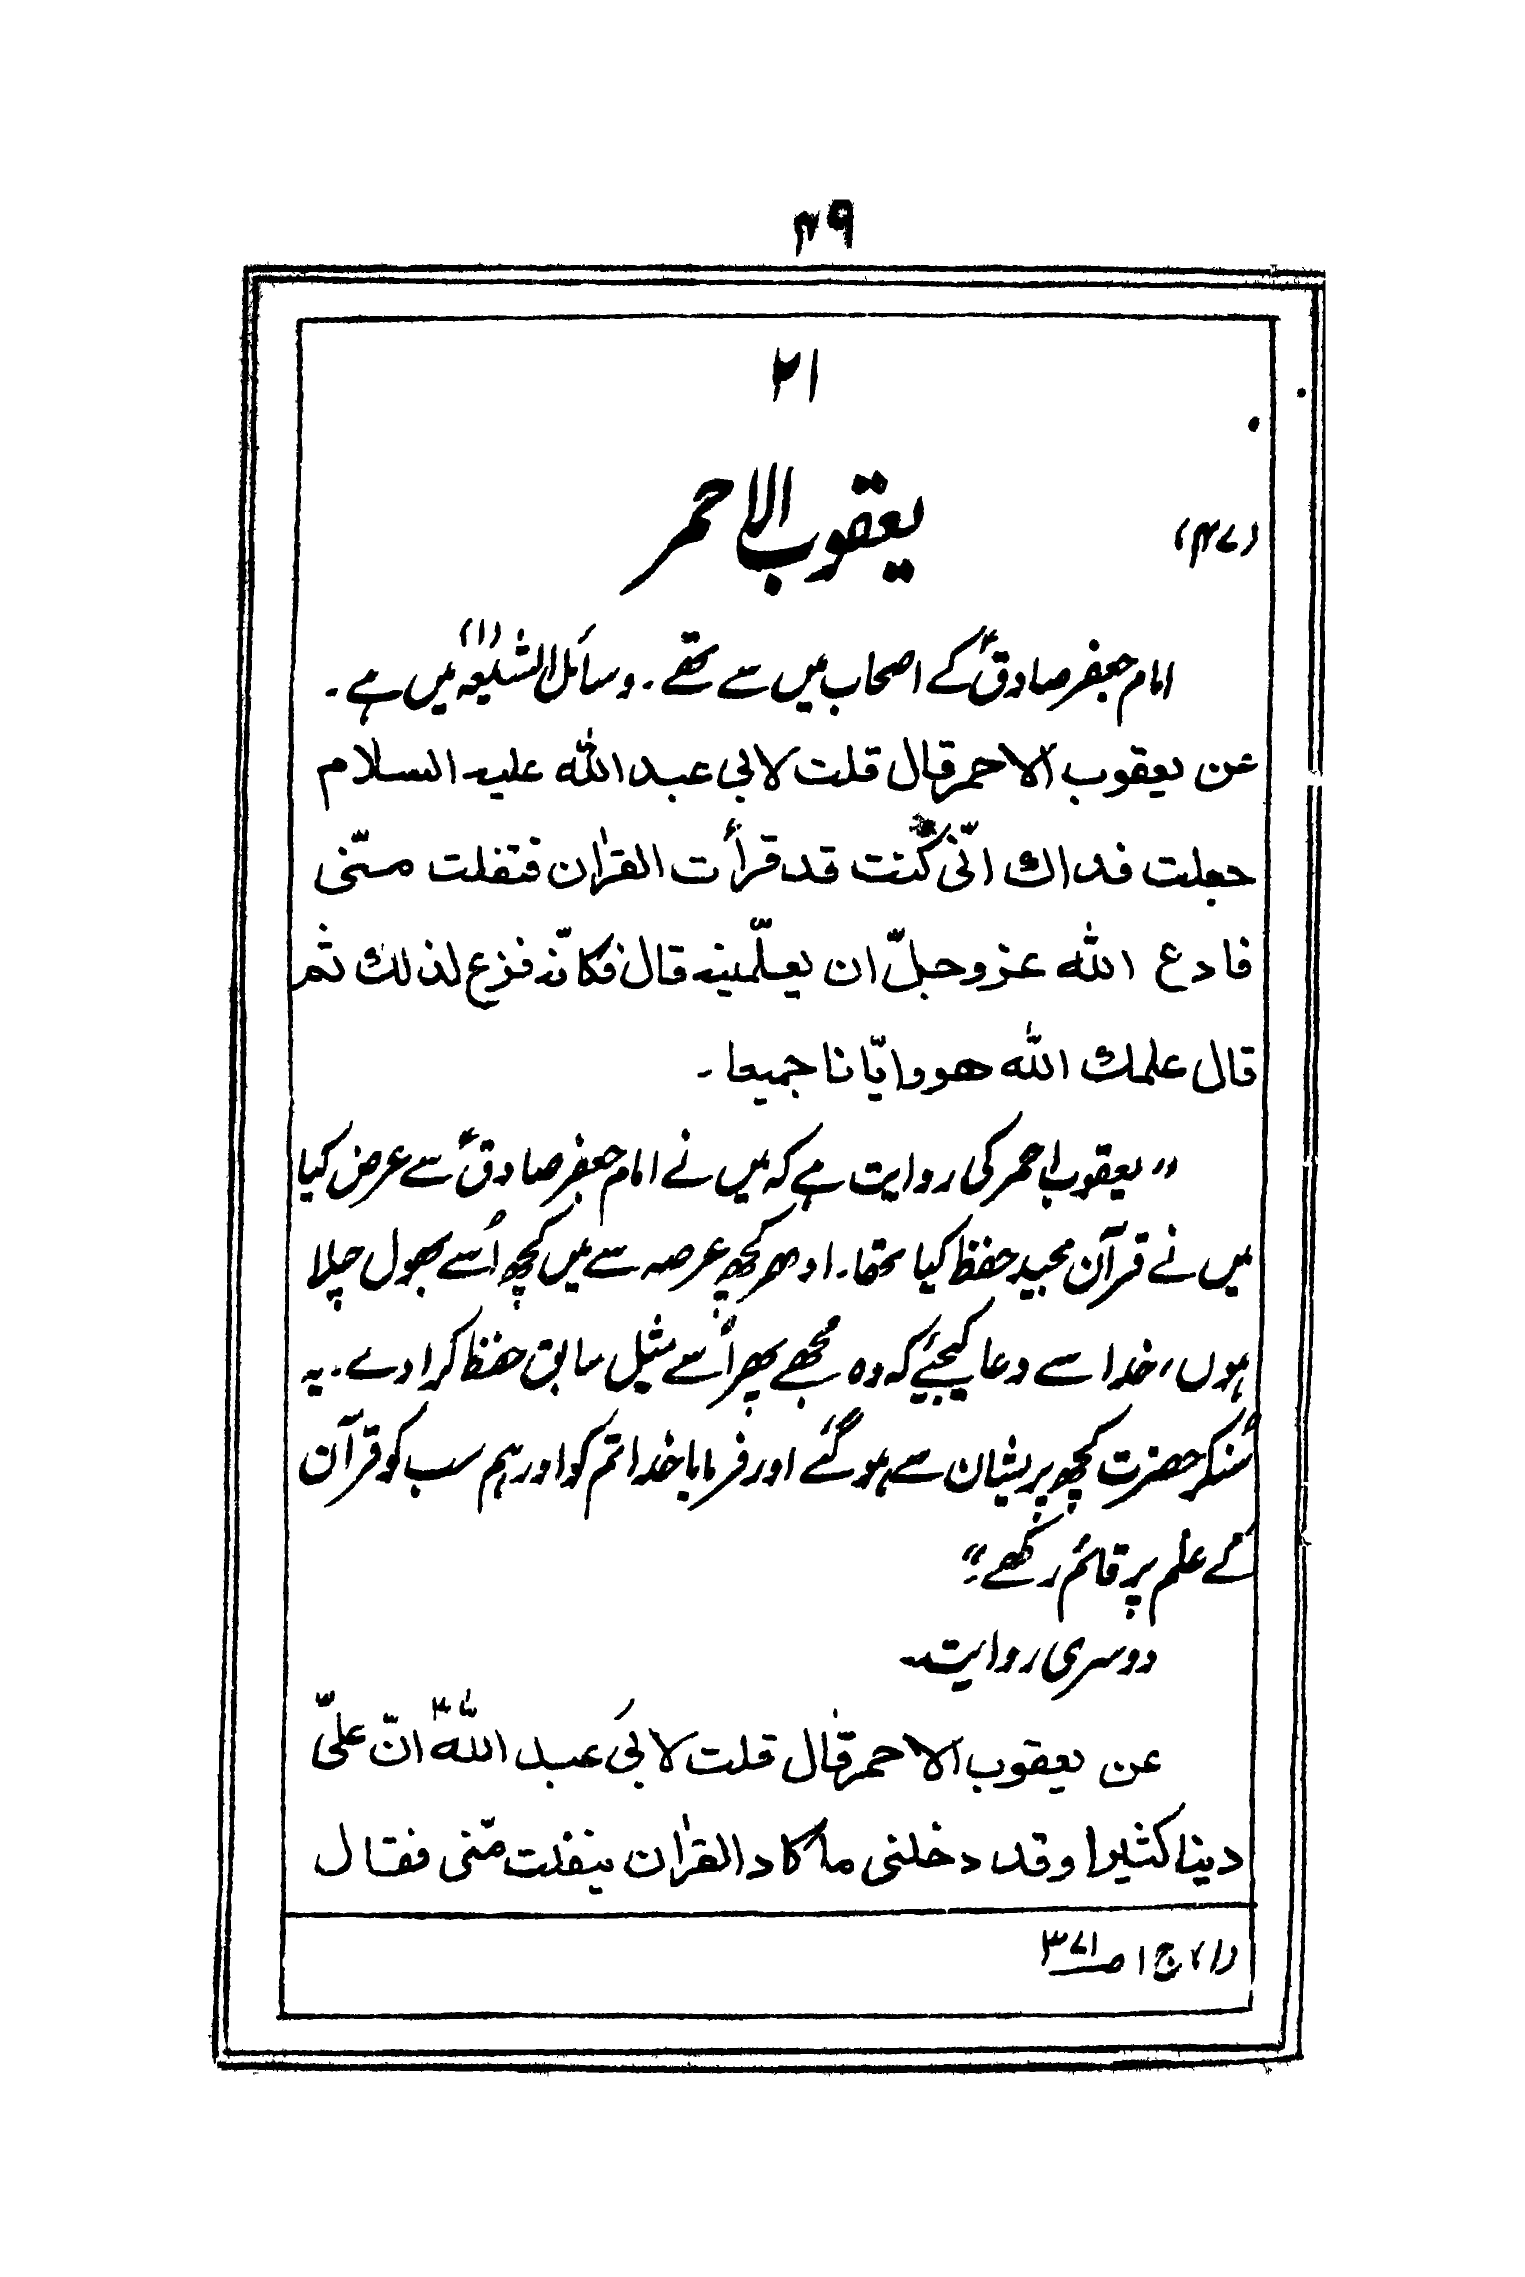 ۴۹
۲۱
(۴۷)
یعقوب الاحمر
امام جعفر صادقؑ کے اصحاب میں سے تھے ۔ وسائل الشیعہ(۱) میں ہے ۔
عن یعقوب الاحمر قال قلت لابی عبد اللہ علیہ السلام
جعلت فداك انّی کنت قد قرأت القرٰان فتفلت منّی
فادع اللہ عز وجلّ ان یعلّمنیہ قال فکانّہ فزع لذلك ثم
قال علمك اللہ ھو وایّانا جمیعا ۔
”یعقوب احمر کی روایت ہے کہ میں نے امام جعفر صادقؑ سے عرض کیا
میں نے قرآن مجید حفظ کیا تھا۔ ادھر کچھ عرصہ سے میں کچھ اُسے بھول چلا
ہوں، خدا سے دعا کیجئے کہ وہ مجھے پھر اُسے مثل سابق حفظ کرا دے ۔ یہ
سُنکر حضرت کچھ پریشان سے ہو گئے اور فرمایا خدا تم کو اور ہم سب کو قرآن
کے علم پر قائم رکھے“
دوسری روایت۔
عن یعقوب الاحمر قال قلت لابی عبد اللہؑ انّ علیّ
دینا کثیرا وقد دخلنی ما کاد القرٰان ینفلت منّی فقال
(۱) ج ۱ ص ۳۷۱